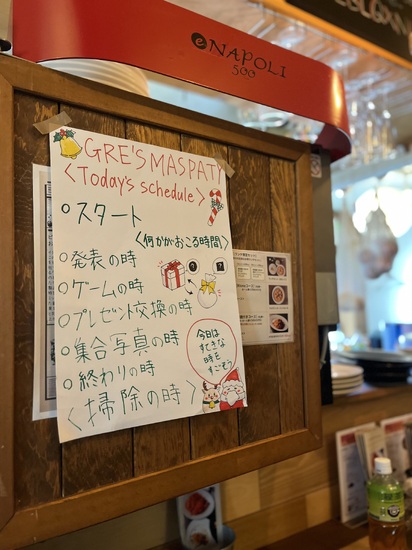 e NAPOLI
500
GRE'S MAS PATY
<Today's schedule>
○スタート
<何かがおこる時間>
○発表の時
○ゲームの時
○プレゼント交換の時
○集合写真の時
○終わりの時
<掃除の時>
? ?
今日は
すてきな
時を
すごそう